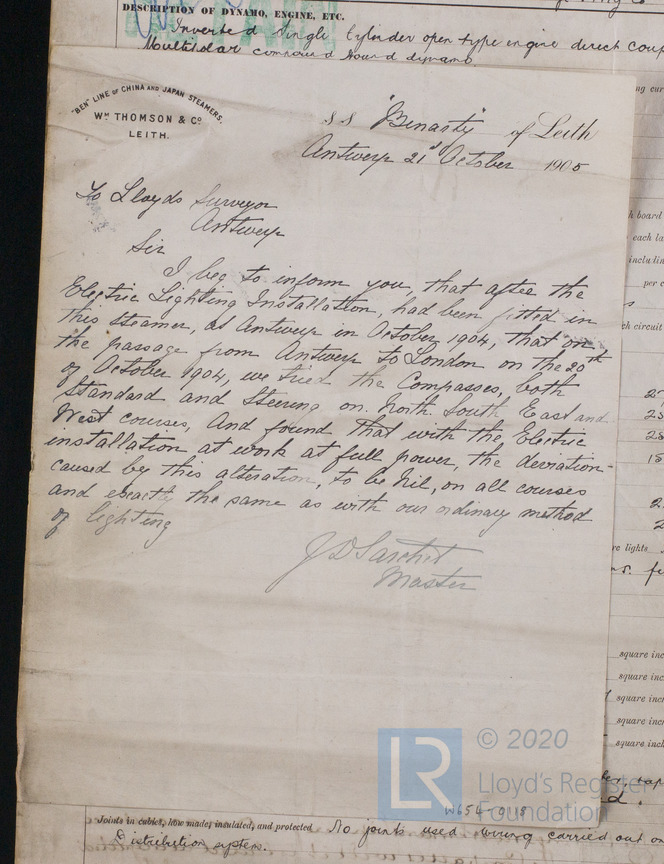 DESCRIPTION OF DYNAMO, ENGINE, ETC.
Inverted Single Cylinder open type engine direct coup
Multipolar compound wound dynamo.
"BEN" LINE OF CHINA AND JAPAN STEAMERS.
Wᴹ THOMSON & Cº
LEITH.
S S "Benarty" of Leith
Antwerp 21st October 1905
To Lloyds Surveyor
Antwerp
Sir
I beg to inform you, that after the
Electric Lighting Installation, had been fitted in
this steamer, at Antwerp in October, 1904, that on
the passage from Antwerp to London on the 20th
of October 1904, we tried the Compasses, both
Standard and Steering on North South East and
West courses, And found that with the Electric
installation at work at full power, the deviation
caused by this alteration, to be Nil, on all courses
and exactly the same as with our ordinary method
of lighting
J D Sarchet
Master
ng cur
h board
each la
includin
per c
s
ch circuit
re lights
square inc
square inc
square inc
square inc
square inch
d.
LR
© 2020
Lloyd's Register
Foundation
W654-0118
Joints in cables, how made, insulated, and protected No joints used wiring carried out o
Distribution system.